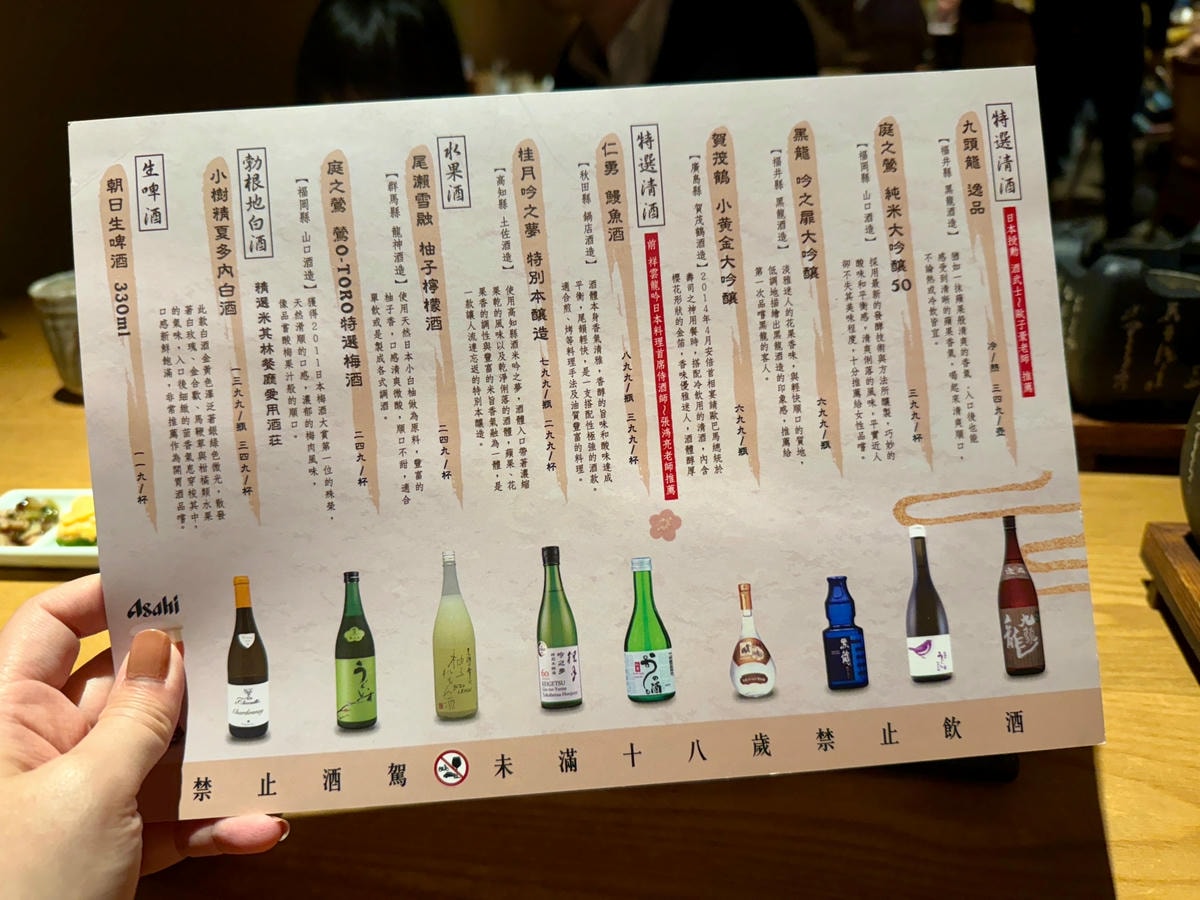 特選清酒
日本授勳 酒武士~歐子豪老師 推薦
九頭龍 逸品
【福井縣 黑龍酒造】
猶如一抹蘋果般清爽的香氣，入口後也能
感受到清晰的蘋果香氣。喝起來清爽順口，
不論熱或冷飲皆宜。
冷/熱 三四九/壺
庭之鶯 純米大吟釀 50
【福岡縣 山口酒造】
採用最新的發酵技術與方法所釀製，巧妙的
酸味和平衡感，清爽俐落的風味，平實近人
卻不失其美味程度，十分推薦給女性品嚐。
三九九/杯
黑龍 吟之扉大吟釀
【福井縣 黑龍酒造】
淡雅迷人的花果香味，與輕快順口的質地，
低調地描繪出黑龍酒造的印象感，推薦給
第一次品嚐黑龍的客人。
六九九/瓶
賀茂鶴 小黃金大吟釀
【廣島縣 賀茂鶴酒造】
2014年4月安倍首相宴請歐巴馬總統於
壽司之神用餐時，搭配冷飲用的清酒，內含
櫻花形狀的金箔，香味優雅迷人，酒體醇厚
六九九/瓶
特選清酒
前 祥雲龍吟日本料理首席侍酒師~張鴻亮老師推薦
仁勇 鰻魚酒
【秋田縣 鍋店酒造】
酒體本身香氣清雅，香醇的旨味和酸味達成
平衡，尾韻輕快，是一支搭配性極強的酒款。
適合煎、烤等料理手法及油質豐富的料理。
八九九/瓶 三九九/杯
桂月吟之夢 特別本釀造
【高知縣 土佐酒造】
使用高知縣酒米吟之夢，酒體入口帶著濃縮
果乾的風味以及乾淨俐落的酒體，蘋果、花
果香的調性與豐富的米旨香氣融為一體，是
一款讓人流連忘返的特別本釀造。
七九九/瓶 二九九/杯
水果酒
尾瀨雪融 柚子檸檬酒
【群馬縣 龍神酒造】
使用天然日本小白柚做為原料，豐富的
柚子香，口感清爽微酸，順口不甜，適合
單飲或是製成各式調酒。
二四九/杯
庭之鶯 鶯O-TORO特選梅酒
【福岡縣 山口酒造】
獲得2011日本梅酒大賞第一位的殊榮，
天然滑順的口感，濃郁的梅肉風味，
像品嘗酸梅果汁般的順口。
二四九/杯
勃根地白酒
精選米其林餐廳愛用酒莊
小樹精夏多內白酒
一三九九/瓶 三四九/杯
此款白酒金黃色澤泛著銀綠色微光，散發
著白玫瑰、金合歡、馬鞭草與柑橘類水果
的氣味，入口後細緻的茴香氣息穿梭其中，
口感新鮮飽滿，非常推薦作為開胃酒品嚐。
生啤酒
朝日生啤酒 330ml
一一九/杯
Asahi
Chardonnay
うぐいす
桂月
吟之夢
60
KEIGETSU
Gin-no-Yume
Tokubetsu Honjozo
の酒
黒龍
九頭龍
禁止酒駕 未滿十八歲禁止飲酒